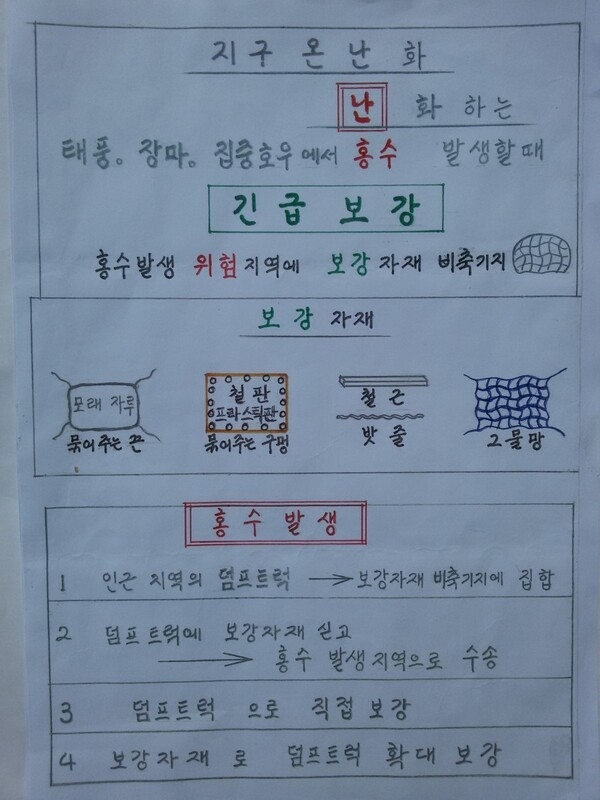 지구 온 난 화
난 화 하는
태풍。장마。집중호우에서 홍수 발생할때
긴급 보강
홍수발생 위험지역에 보강자재 비축기지
보강 자재
모래 자루
묶어주는 끈
철판
프라스틱판
묶어주는 구멍
철근
밧줄
그물망
홍수발생
1 인근 지역의 덤프트럭 → 보강자재 비축기지에 집합
2 덤프트럭에 보강자재 싣고
→ 홍수 발생지역으로 수송
3 덤프트럭 으로 직접 보강
4 보강자재 로 덤프트럭 확대 보강